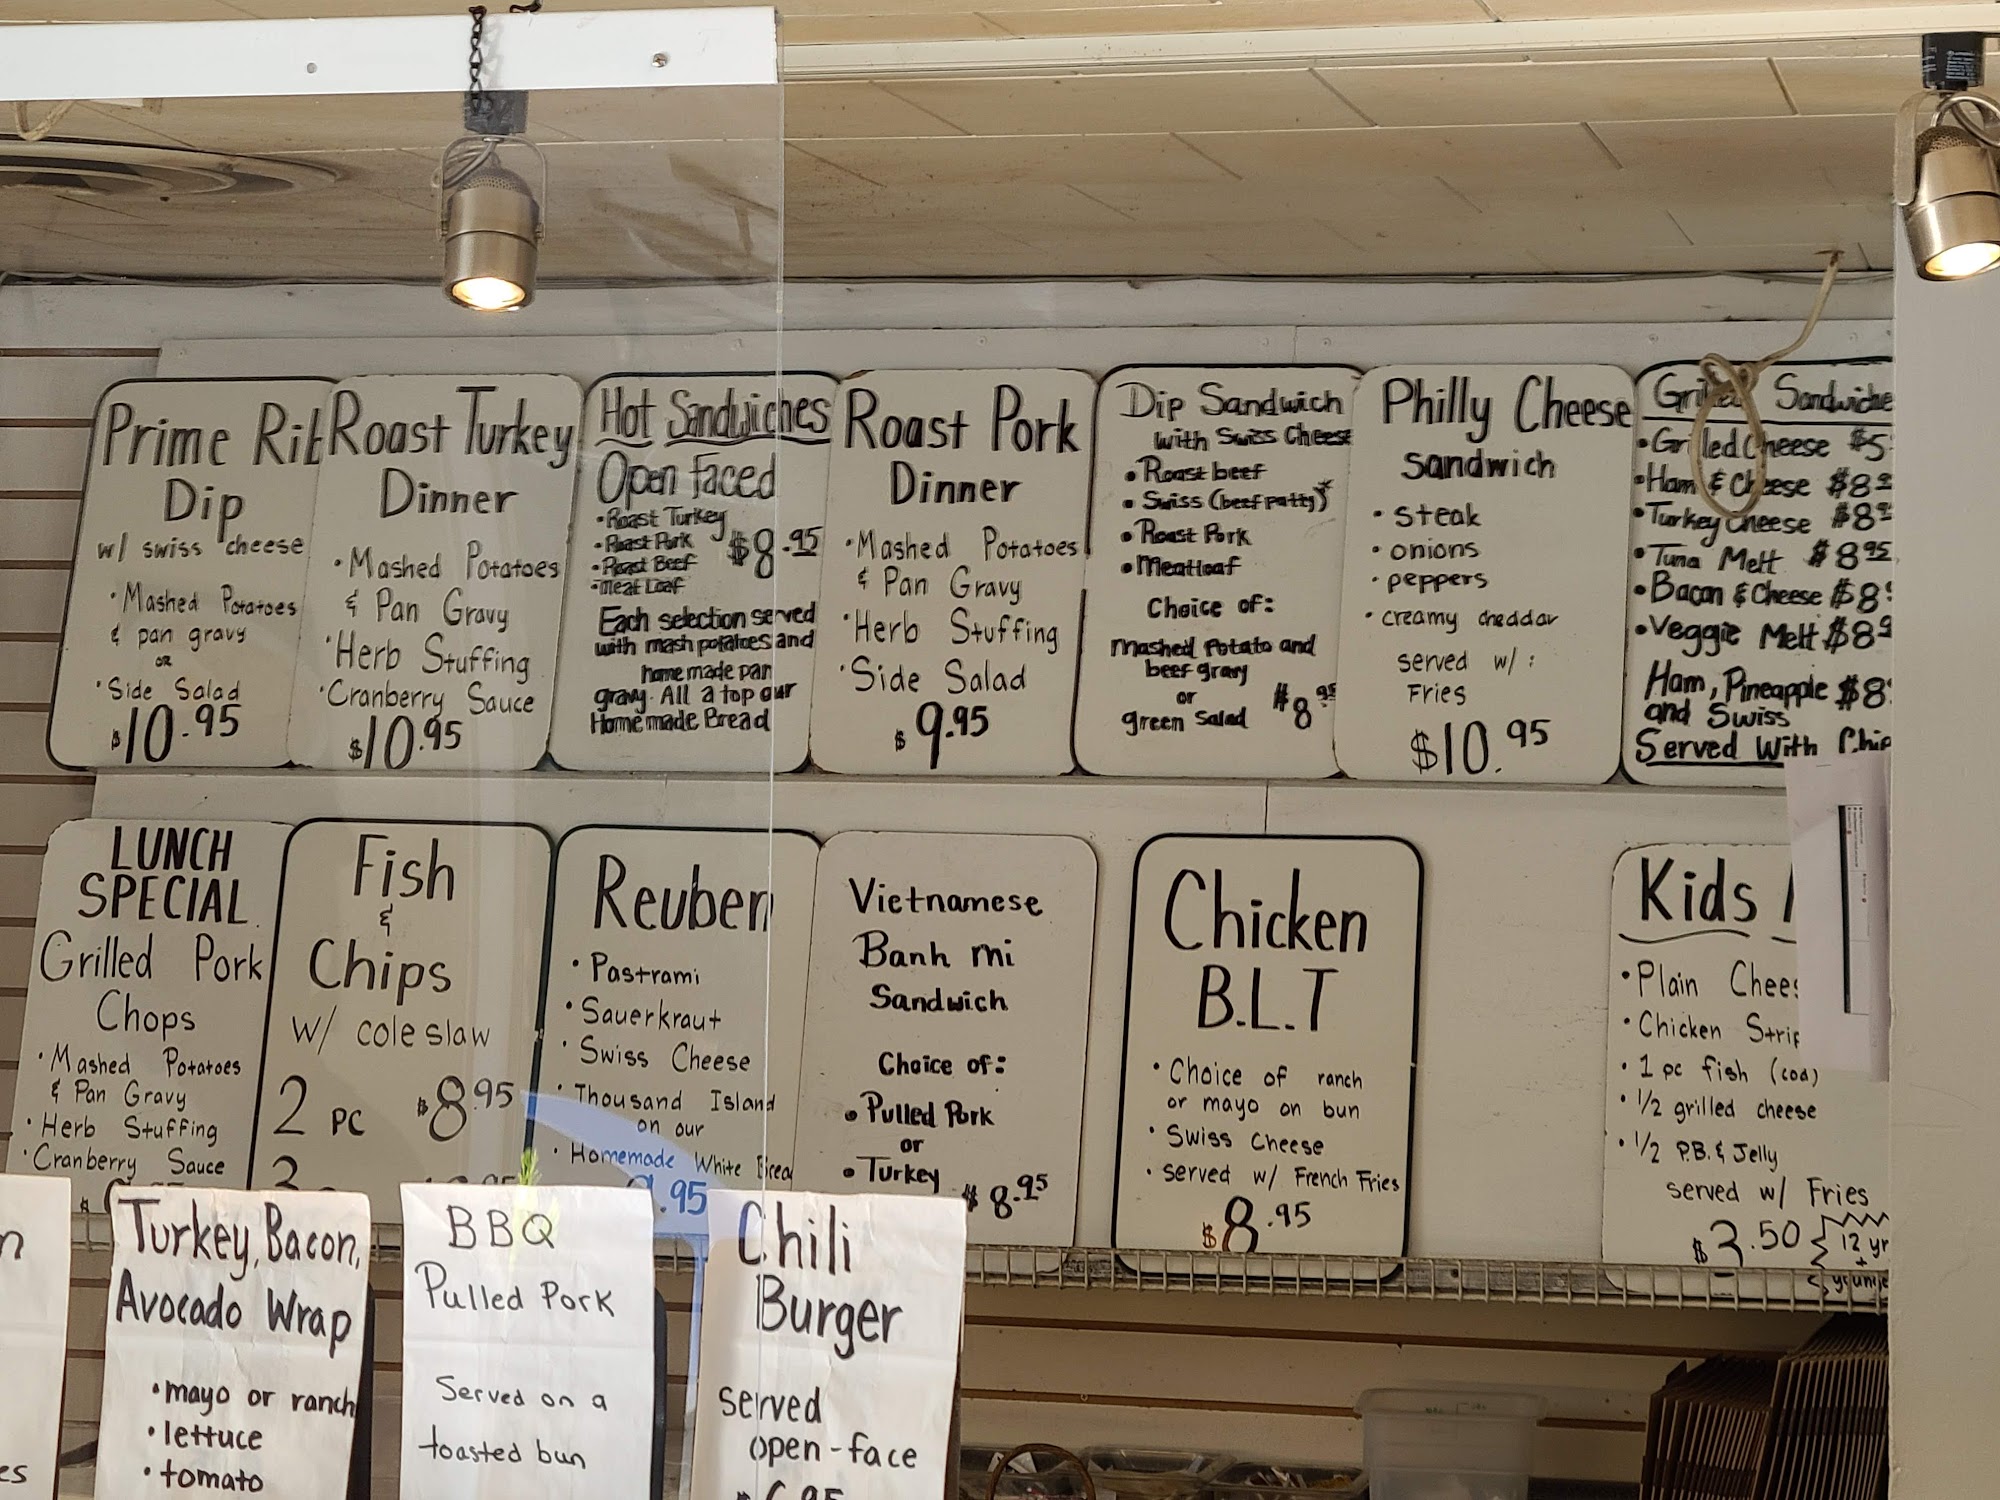 Prime Rib
Dip
w/ swiss cheese
• Mashed Potatoes
& pan gravy
or
• Side Salad
$10.95
Roast Turkey
Dinner
• Mashed Potatoes
& Pan Gravy
• Herb Stuffing
• Cranberry Sauce
$10.95
Hot Sandwiches
Open Faced
• Roast Turkey
• Roast Pork
• Roast Beef
• Meat Loaf
$8.95
Each selection served
with mash potatoes and
homemade pan
gravy. All a top our
Homemade Bread
Roast Pork
Dinner
• Mashed Potatoes
& Pan Gravy
• Herb Stuffing
• Side Salad
$9.95
Dip Sandwich
with Swiss Cheese
• Roast beef
• Swiss (beef patty)*
• Roast Pork
• Meatloaf
Choice of:
Mashed Potato and
beef gravy
or
green Salad
$8.95
Philly Cheese
Sandwich
• steak
• onions
• peppers
• creamy cheddar
served w/ :
Fries
$10.95
Grilled Sandwiche
• Grilled Cheese $5
• Ham & Cheese $8
• Turkey Cheese $8
• Tuna Melt $8.95
• Bacon & Cheese $8
• Veggie Melt $8
Ham, Pineapple $8
and Swiss
Served With Chip
LUNCH
SPECIAL
Grilled Pork
Chops
• Mashed Potatoes
& Pan Gravy
• Herb Stuffing
• Cranberry Sauce
Fish
&
Chips
w/ coleslaw
2 PC $8.95
3
Reuben
• Pastrami
• Sauerkraut
• Swiss Cheese
• Thousand Island
on our
• Homemade White Bread
9.95
Vietnamese
Banh mi
Sandwich
Choice of:
• Pulled Pork
or
• Turkey $8.95
Chicken
B.L.T
• Choice of ranch
or mayo on bun
• Swiss Cheese
• served w/ French Fries
$8.95
Kids
• Plain Chees
• Chicken Strip
• 1 pc fish (cod)
• 1/2 grilled cheese
• 1/2 P.B. & Jelly
served w/ Fries
$3.50
12 yr
+
younge
n
es
Turkey, Bacon,
Avocado Wrap
• mayo or ranch
• lettuce
• tomato
BBQ
Pulled Pork
Served on a
toasted bun
Chili
Burger
served
open-face
$6.95